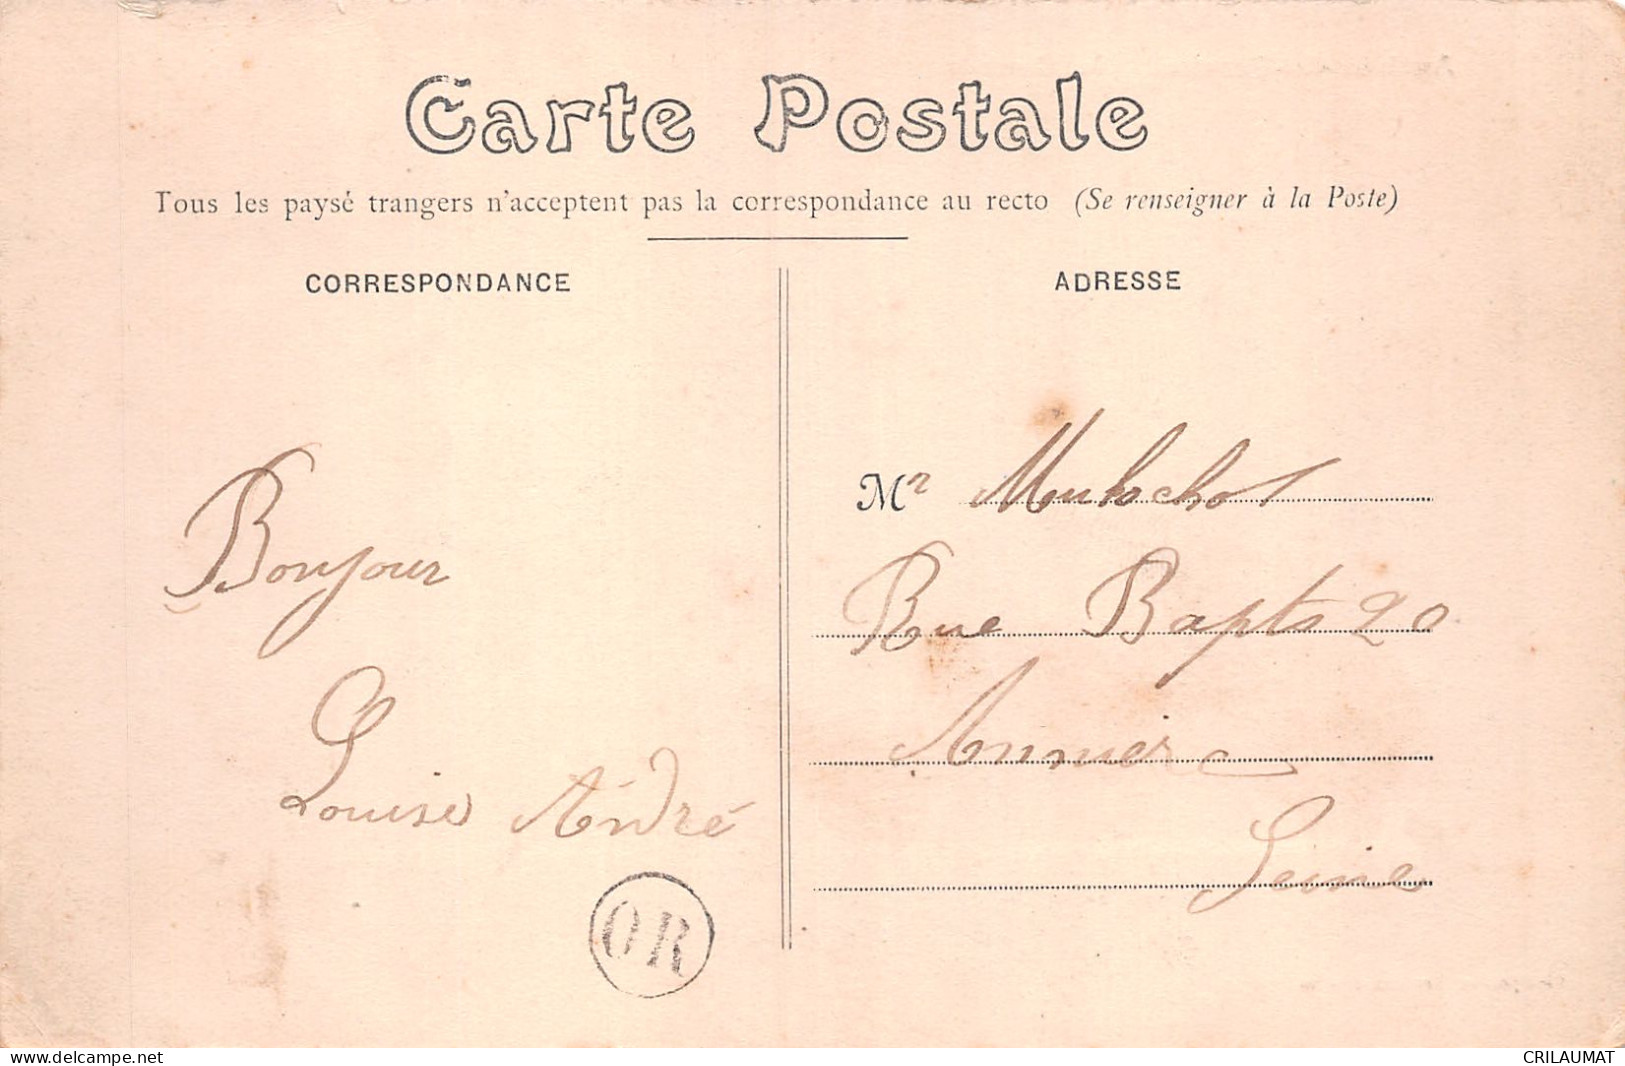 Carte Postale
Tous les paysé trangers n'acceptent pas la correspondance au recto (Se renseigner à la Poste)
CORRESPONDANCE
ADRESSE
Bonjour
Louise André
OR
Mr
Rue Bapts 20
Seine
www.delcampe.net
CRILAUMAT